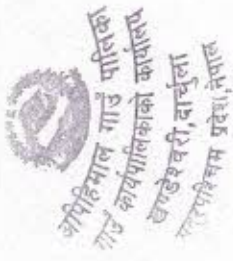 अपिहिमाल गाउँ पालिका
गाउँ कार्यपालिकाको कार्यालय
खण्डेश्वरी,दार्चुला
सुदूरपश्चिम प्रदेश,नेपाल